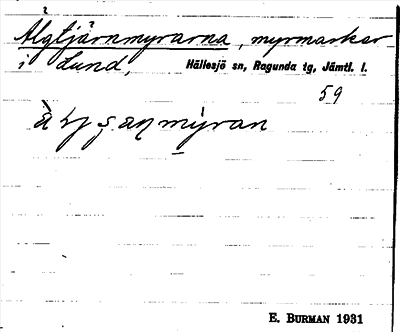 Älgtjärnmyrarna, myrmarker
i Lund, Hällesjö sn, Ragunda tg, Jämtl. l.
59
E. BURMAN 1931